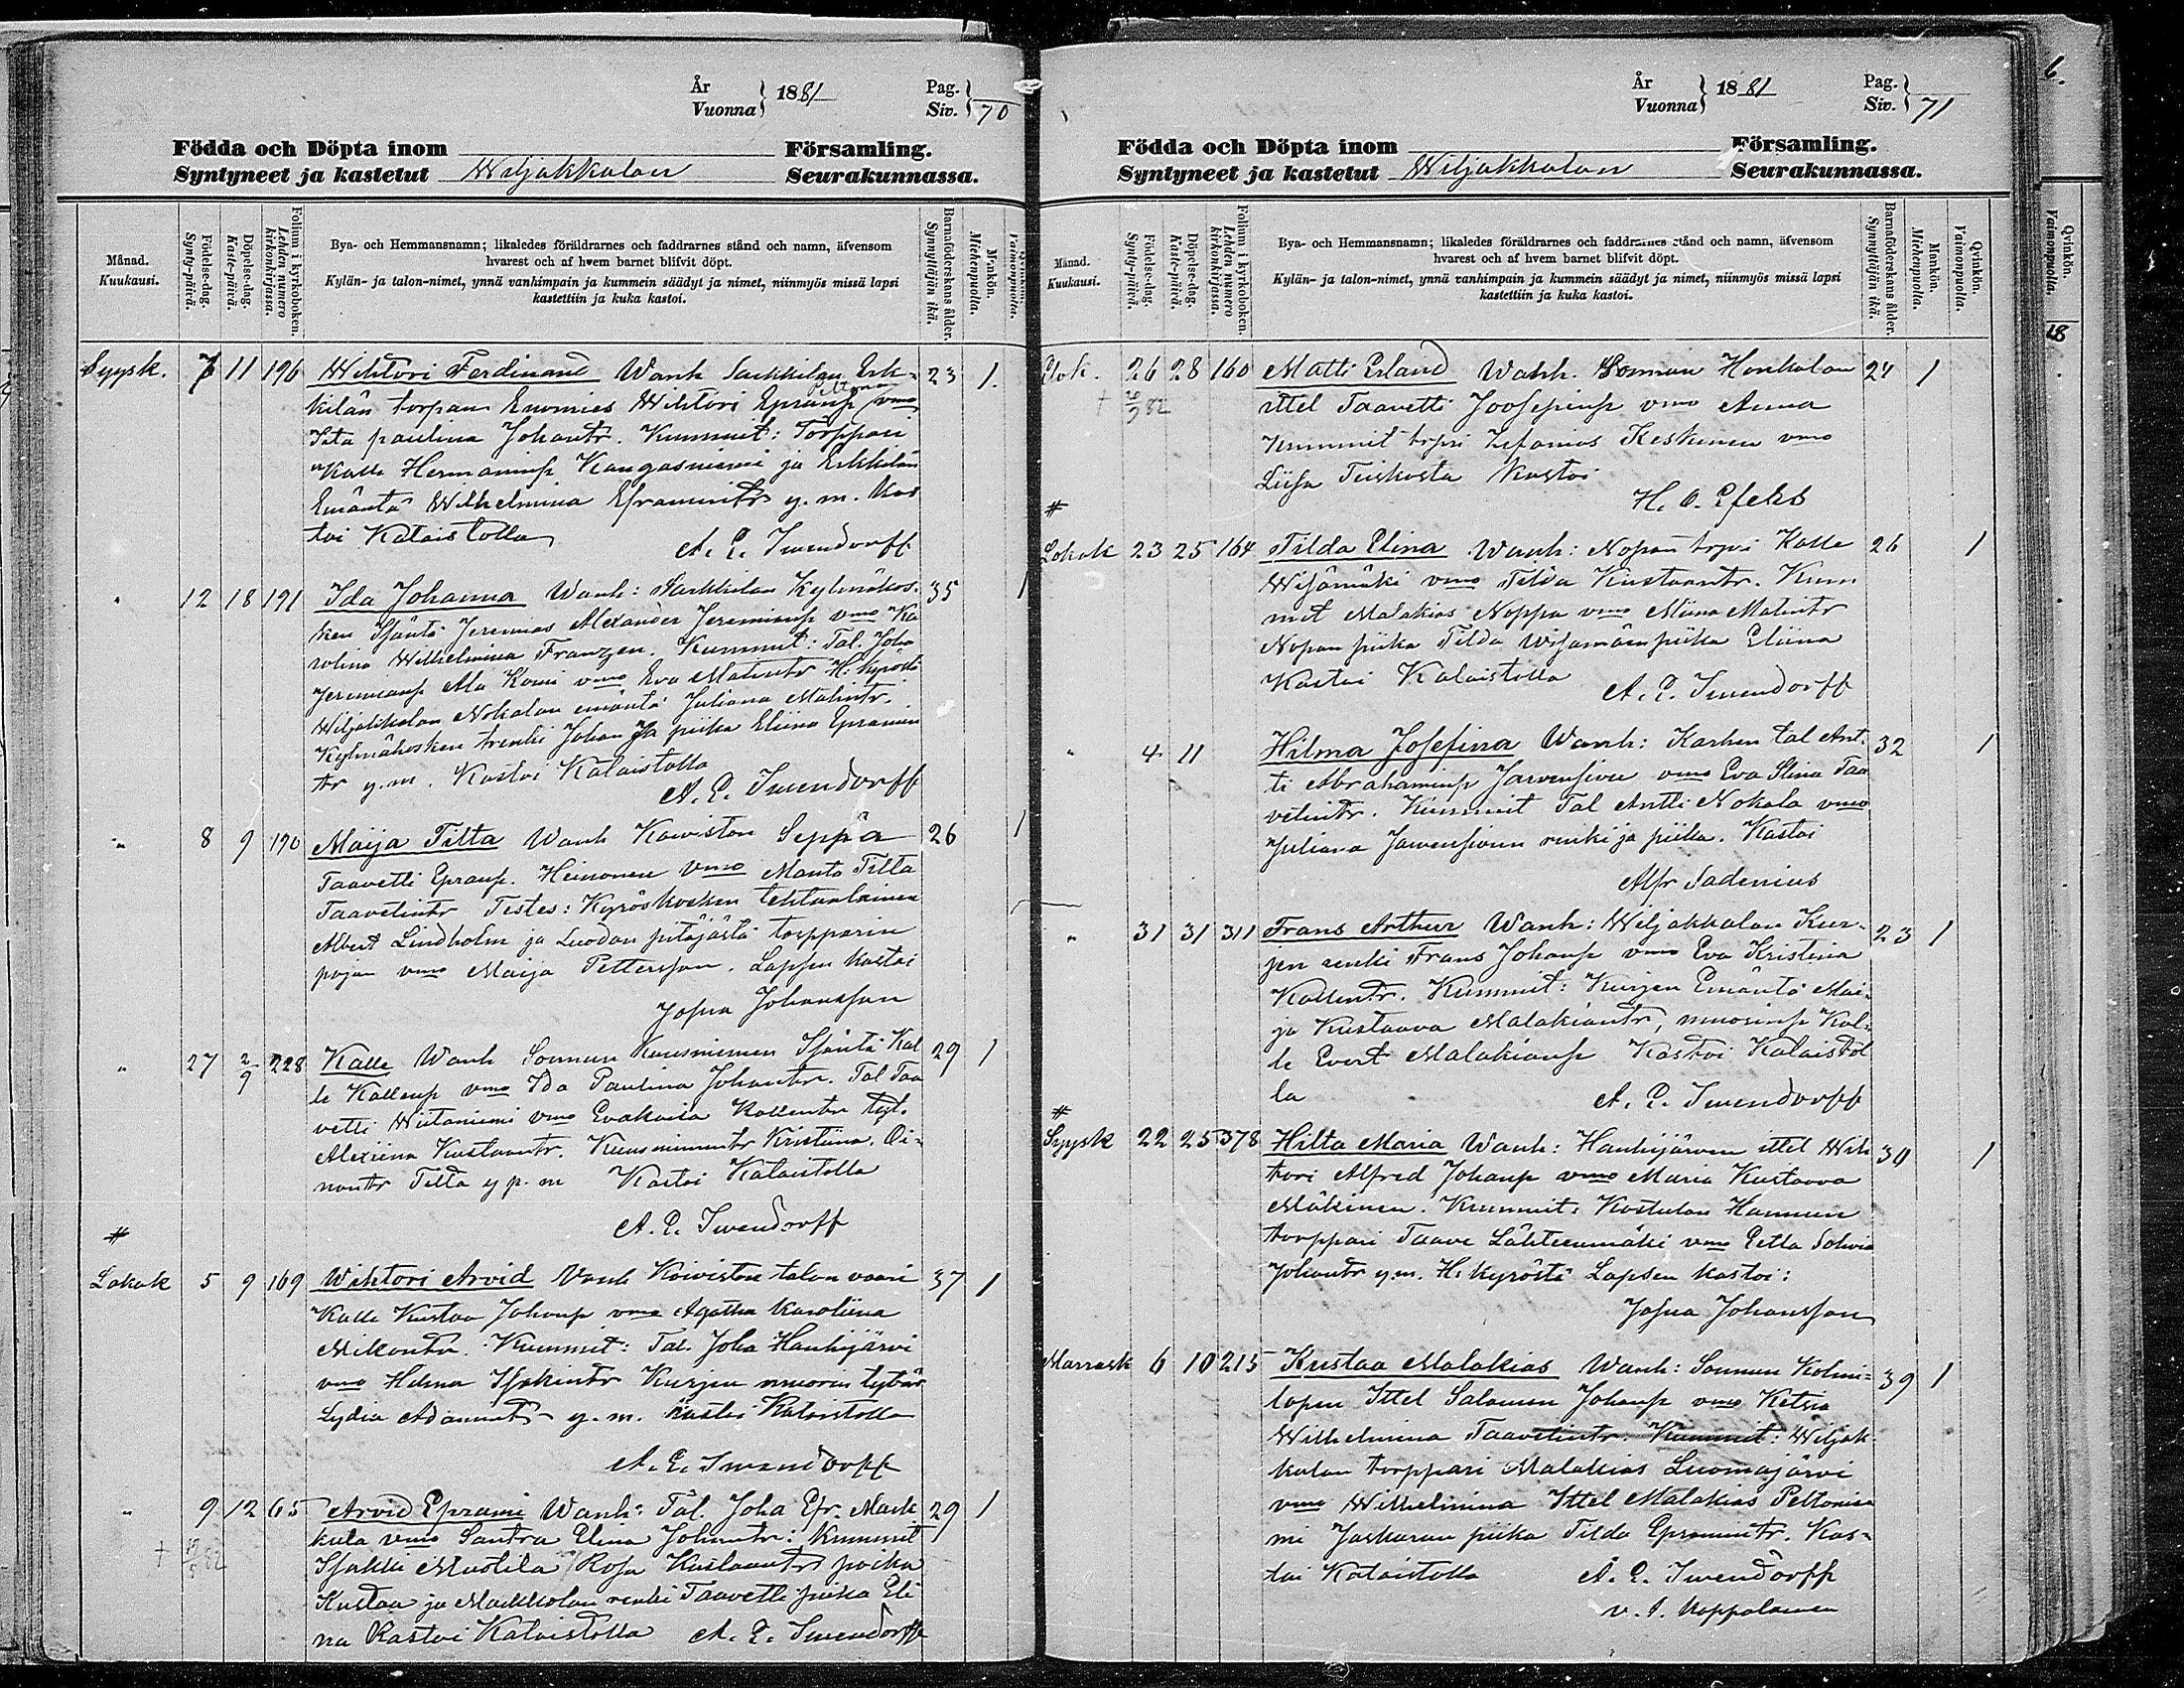 År
Vuonna } 1881
Pag.
Siv. } 70
Födda och Döpta inom Församling.
Syntyneet ja kastetut Wiljakkalan Seurakunnassa.
Månad.
Kuukausi.
Födelse-dag.
Synty-päivä.
Döpelse-dag.
Kaste-päivä.
Folium i kyrkoboken.
Lehden numero kirkonkirjassa.
Bya- och Hemmansnamn; likaledes föräldrarnes och faddrarnes stånd och namn, äfvensom
hvarest och af hvem barnet blifvit döpt.
Kylän- ja talon-nimet, ynnä vanhimpain ja kummein säädyt ja nimet, niinmyös missä lapsi
kastettiin ja kuka kastoi.
Barnaföderskans ålder.
Synnyttäjän ikä.
Mankön.
Miehenpuolia.
Vaimonpuolia.
Syysk. 7 11 196 Wihtori Ferdinand Wanh Sarkkilan Erk- 23 1.
kilän torpan Enomies Wihtori vmo
Ita paulina Johantr. Kummit: Torppari
Kalle Hermaninp Kangasniemi ja Erkkilän
Emäntä Wilhelmina Eframintr y. m. Kas
toi Kalaistolla A. E. Iwendorff
" 12 18 191 Ida Johanna Wanh: Sarkkilan Kylmäkos- 35 1
ken Isäntä Jeremias Alexander Jeremianp vmo Ka
rolina Wilhelmina Franzen. Kummit: Tal. Joha
Jeremianp Ala Komi vmo Eva Matintr H. Kyröstä
Wiljakkalan Nokalan emäntä Juliana Matintr.
Kylmäkosken trenki Johan Ja piika Eliina Epramin
tr y.m. Kastoi Kalaistolla
A. E. Iwendorff
" 8 9 190 Maija Tilta Wanh Koiviston Seppä 26 1
Taavetti Epranp. Heinonen vmo Manta Tilta
Taavetintr Testes: Kyröskosken tehtaalainen
Albert Lindholm ja Luodan pitäjästä torpparin
pojan vmo Maija Pettersson. Lapsen kastoi
Josua Johansson
" 27 2/9 228 Kalle Wanh Sonnun Kuusniemen Isäntä Kal 29 1
le Kallenp vmo Ida Paulina Johantr. Tal Taa
vetti Wiitaniemi vmo Evakaisa Kallentr tyt.
Alexiina Kustaantr. Kuusniementr Kristiina. Oi-
nontr Tilta y p. m Kastoi Kalaistolla
A. E. Iwendorff
#
Lokak 5 9 169 Wihtori Arvid Vanh Koiviston talon vaari 37 1
Kalle Kustaa Johanp vmo Agatha Karoliina
Mikontr. Kummit: Tal. Joha Hanhijärvi
vmo Hilma Isakintr Kurjen nuorin tytär
Lydia Adamintr y. m. kastoi Kalaistolla
A. E. Iwendorff
" 9 12 65 Arvid Eprami Wanh: Tal. Joha Efr. Mark 29 1
kula vmo Santra Elina Johantr: Kummit
Isakki Mustila Rosa Kustaantr poika
Kustaa ja Markkolan renki Taavetti piika Eli
na Kastoi Kalaistolla A. E. Iwendorff
År
Vuonna } 1881
Pag.
Siv. } 71
Födda och Döpta inom Församling.
Syntyneet ja kastetut Wiljakkalan Seurakunnassa.
Månad.
Kuukausi.
Födelse-dag.
Synty-päivä.
Döpelse-dag.
Kaste-päivä.
Folium i kyrkoboken.
Lehden numero kirkonkirjassa.
Bya- och Hemmansnamn; likaledes föräldrarnes och faddrarnes stånd och namn, äfvensom
hvarest och af hvem barnet blifvit döpt.
Kylän- ja talon-nimet, ynnä vanhimpain ja kummein säädyt ja nimet, niinmyös missä lapsi
kastettiin ja kuka kastoi.
Barnaföderskans ålder.
Synnyttäjän ikä.
Mankön.
Miehenpuolia.
Qvinkön.
Vaimonpuolia.
Elok. 26 28 160 Matti Erland Wanh. Sonnun Honkalan 24 1
ittel Taavetti Joosepinp vmo Anna
Kummit trpri Zefanias Keskinen vmo
Liisa Tuiskosta Kastoi
H. O.
#
Lokak 23 25 164 Tilda Elina Wanh: Nopan trpri Kalle 26 1
Wisämäki vmo Tilda Kustaantr. Kum
mit Malakias Noppa vmo Miina Matintr
Nopan piika Tilda Wisamäen piika Eliina
Kastoi Kalaistolla A. E. Iwendorff
" 4 11 Hilma Josefina Wanh: Karhen tal Ant- 32 1
ti Abrahaminp Jarvensivu vmo Eva Stina Taa
vetintr. Kummit Tal Antti Nokala vmo
Juliana Jarvensivun renki ja piika. Kastoi
Alfr Sadenius
" 31 31 311 Frans Arthur Wanh: Wiljakkalan Kur- 23 1
jen renki Frans Johanp vmo Eva Kristina
Kallentr. Kummit: Kurjen Emäntä Mai-
ja Kustaava Malakiantr, nuorinp Kal-
le Evert Malakianp Kastoi Kalaistol
la A. E. Iwendorff
#
Syysk 22 25 378 Hilta Maria Wanh: Hanhijärven ittel Wih 30 1
tori Alfred Johanp vmo Maria Kustaava
Mäkinen. Kummit: Kostulan Hannun
torppari Taave Lähteenmäki vmo Eetla Sohvia
Johantr y.m. H. kyröstä Lapsen kastoi:
Josua Johansson
Marrask 6 10 215 Kustaa Malakias Wanh: Sonnun Kolmi- 39 1
lopen Ittel Salomon Johanp vmo Ketsia
Wilhelmina Taavetintr. Kummit: Wiljak
kalan torppari Malakias Luomajärvi
vmo Wilhelmina Ittel Malakias Peltonie
mi Jaskaran piika Tilda Epramintr. Kas-
toi Kalaistolla A. E. Iwendorff
v. t. Kappalainen
6.
Qvinkön.
Vaimonpuolia.
18